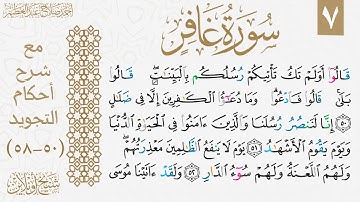 سورة غافر
٧
مع
شرح
أحكام
التجويد
(٥٠-٥٨)
قَالُوٓا۟ أَوَلَمْ تَكُ تَأْتِيكُمْ رُسُلُكُم بِٱلْبَيِّنَـٰتِ ۖ قَالُوا۟
بَلَىٰ ۚ قَالُوا۟ فَٱدْعُوا۟ ۗ وَمَا دُعَـٰٓؤُا۟ ٱلْكَـٰفِرِينَ إِلَّا فِى ضَلَـٰلٍ
۝٥٠ إِنَّا لَنَنصُرُ رُسُلَنَا وَٱلَّذِينَ ءَامَنُوا۟ فِى ٱلْحَيَوٰةِ ٱلدُّنْيَا
وَيَوْمَ يَقُومُ ٱلْأَشْهَـٰدُ ۝٥١ يَوْمَ لَا يَنفَعُ ٱلظَّـٰلِمِينَ مَعْذِرَتُهُمْ ۖ
وَلَهُمُ ٱللَّعْنَةُ وَلَهُمْ سُوٓءُ ٱلدَّارِ ۝٥٢ وَلَقَدْ ءَاتَيْنَا مُوسَى